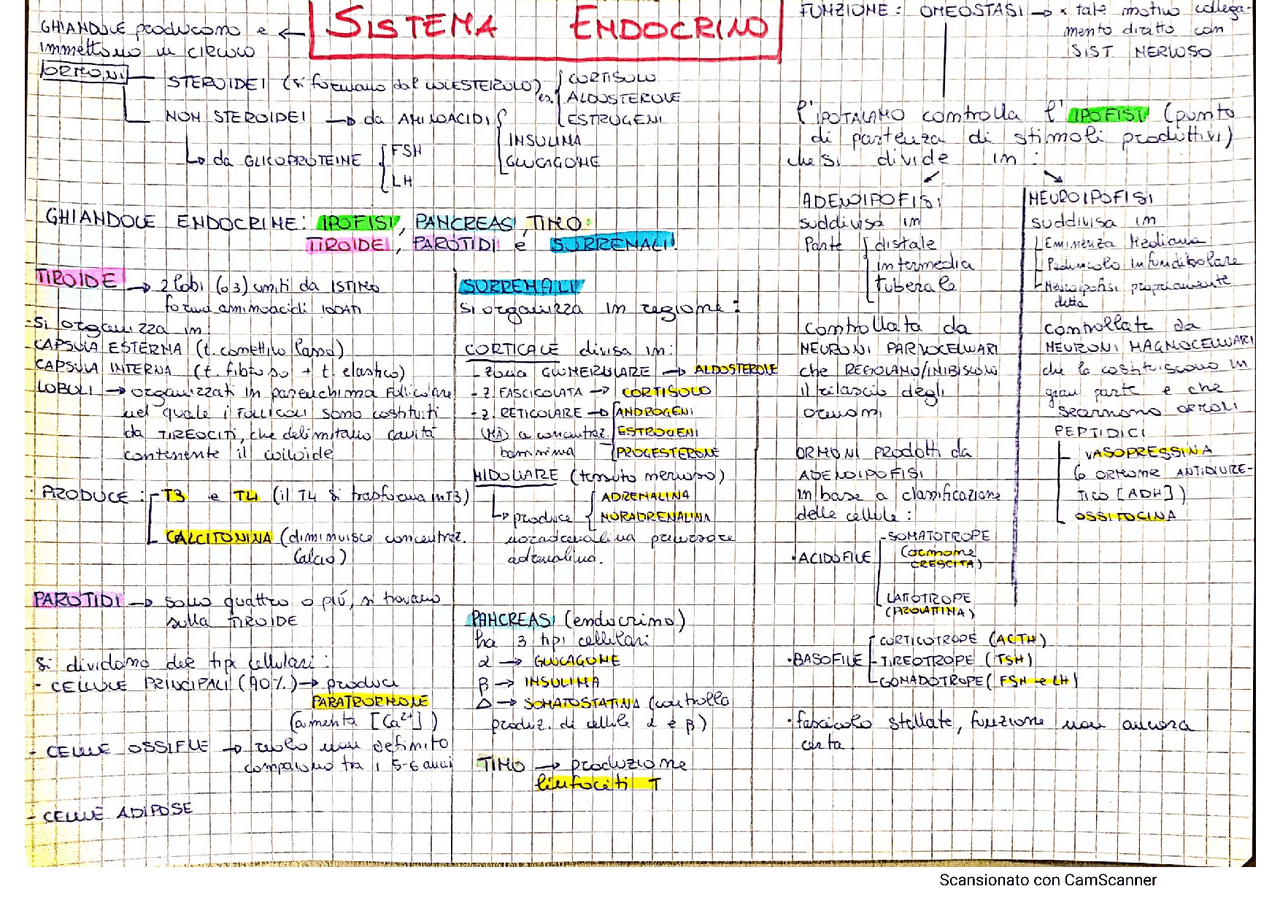 SISTEMA ENDOCRINO
GHIANDOLE producono e ←
immettono in circolo
ORMONI
STEROIDEI (si formano dal COLESTEROLO) es.
CORTISOLO
ALDOSTERONE
ESTROGENI
NON STEROIDEI → da AMINOACIDI
INSULINA
GLUCAGONE
↳ da GLICOPROTEINE
FSH
LH
GHIANDOLE ENDOCRINE: IPOFISI, PANCREAS, TIMO
TIROIDE, PAROTIDI e SURRENALI
TIROIDE → 2 lobi (o 3) uniti da ISTMO
forma aminoacidi IODATI
- Si organizza in:
- CAPSULA ESTERNA (t. connettivo lasso)
- CAPSULA INTERNA (t. fibroso + t. elastico)
LOBULI → organizzati in parenchima follicolare
nel quale i FOLLICOLI sono costituiti
da TIREOCITI, che delimitano cavità
contenente il colloide
· PRODUCE: T3 e T4 (il T4 si trasforma in T3)
CALCITONINA (diminuisce concentraz.
calcio)
PAROTIDI → sono quattro o più, si trovano
sulla TIROIDE
Si dividono due tipi cellulari:
- CELLULE PRINCIPALI (90%) → produce
PARATORMONE
(aumenta [Ca²⁺])
- CELLULE OSSIFILE → ruolo non definito
compaiono tra i 5-6 anni
- CELLULE ADIPOSE
SURRENALI
si organizza in regione:
CORTICALE divisa in:
- zona GLOMERULARE → ALDOSTERONE
- z. FASCICOLATA → CORTISOLO
- z. RETICOLARE →
(MA) a concentraz.
bassissima
ANDROGENI
ESTROGENI
PROGESTERONE
MIDOLLARE (tessuto nervoso)
↳ produce
ADRENALINA
NORADRENALINA
noradrenalina precursore
adrenalina.
PANCREAS (endocrino)
ha 3 tipi cellulari
α → GLUCAGONE
β → INSULINA
Δ → SOMATOSTATINA (controllo
produz. di cellule α e β)
TIMO → produzione
linfociti T
FUNZIONE: OMEOSTASI → x tale motivo collega-
mento diretto con
SIST NERVOSO
l'IPOTALAMO controlla l'IPOFISI (punto
di partenza di stimoli produttivi)
che si divide in:
ADENOIPOFISI
suddivisa in
Parte
distale
intermedia
tuberale
controllata da
NEURONI PARVOCELLULARI
che REGOLANO/INIBISCONO
il rilascio degli
ormoni
ORMONI PRODOTTI da
ADENOIPOFISI
in base a classificazione
delle cellule:
· ACIDOFILE
- SOMATOTROPE
(ormone
CRESCITA)
LATTOTROPE
(PROLATTINA)
· BASOFILE
CORTICOTROPE (ACTH)
- TIREOTROPE (TSH)
GONADOTROPE (FSH e LH)
· fascicolo stellate, funzione non ancora
certa.
NEUROIPOFISI
suddivisa in
Eminenza Mediana
Peduncolo Infundibolare
Neuroipofisi propriamente
detta
controllata da
NEURONI MAGNOCELLULARI
che la costituiscono in
gran parte e che
secernono ORMONI
PEPTIDICI
- VASOPRESSINA
(o ORMONE ANTIDIURE-
TICO [ADH])
OSSITOCINA
Scansionato con CamScanner